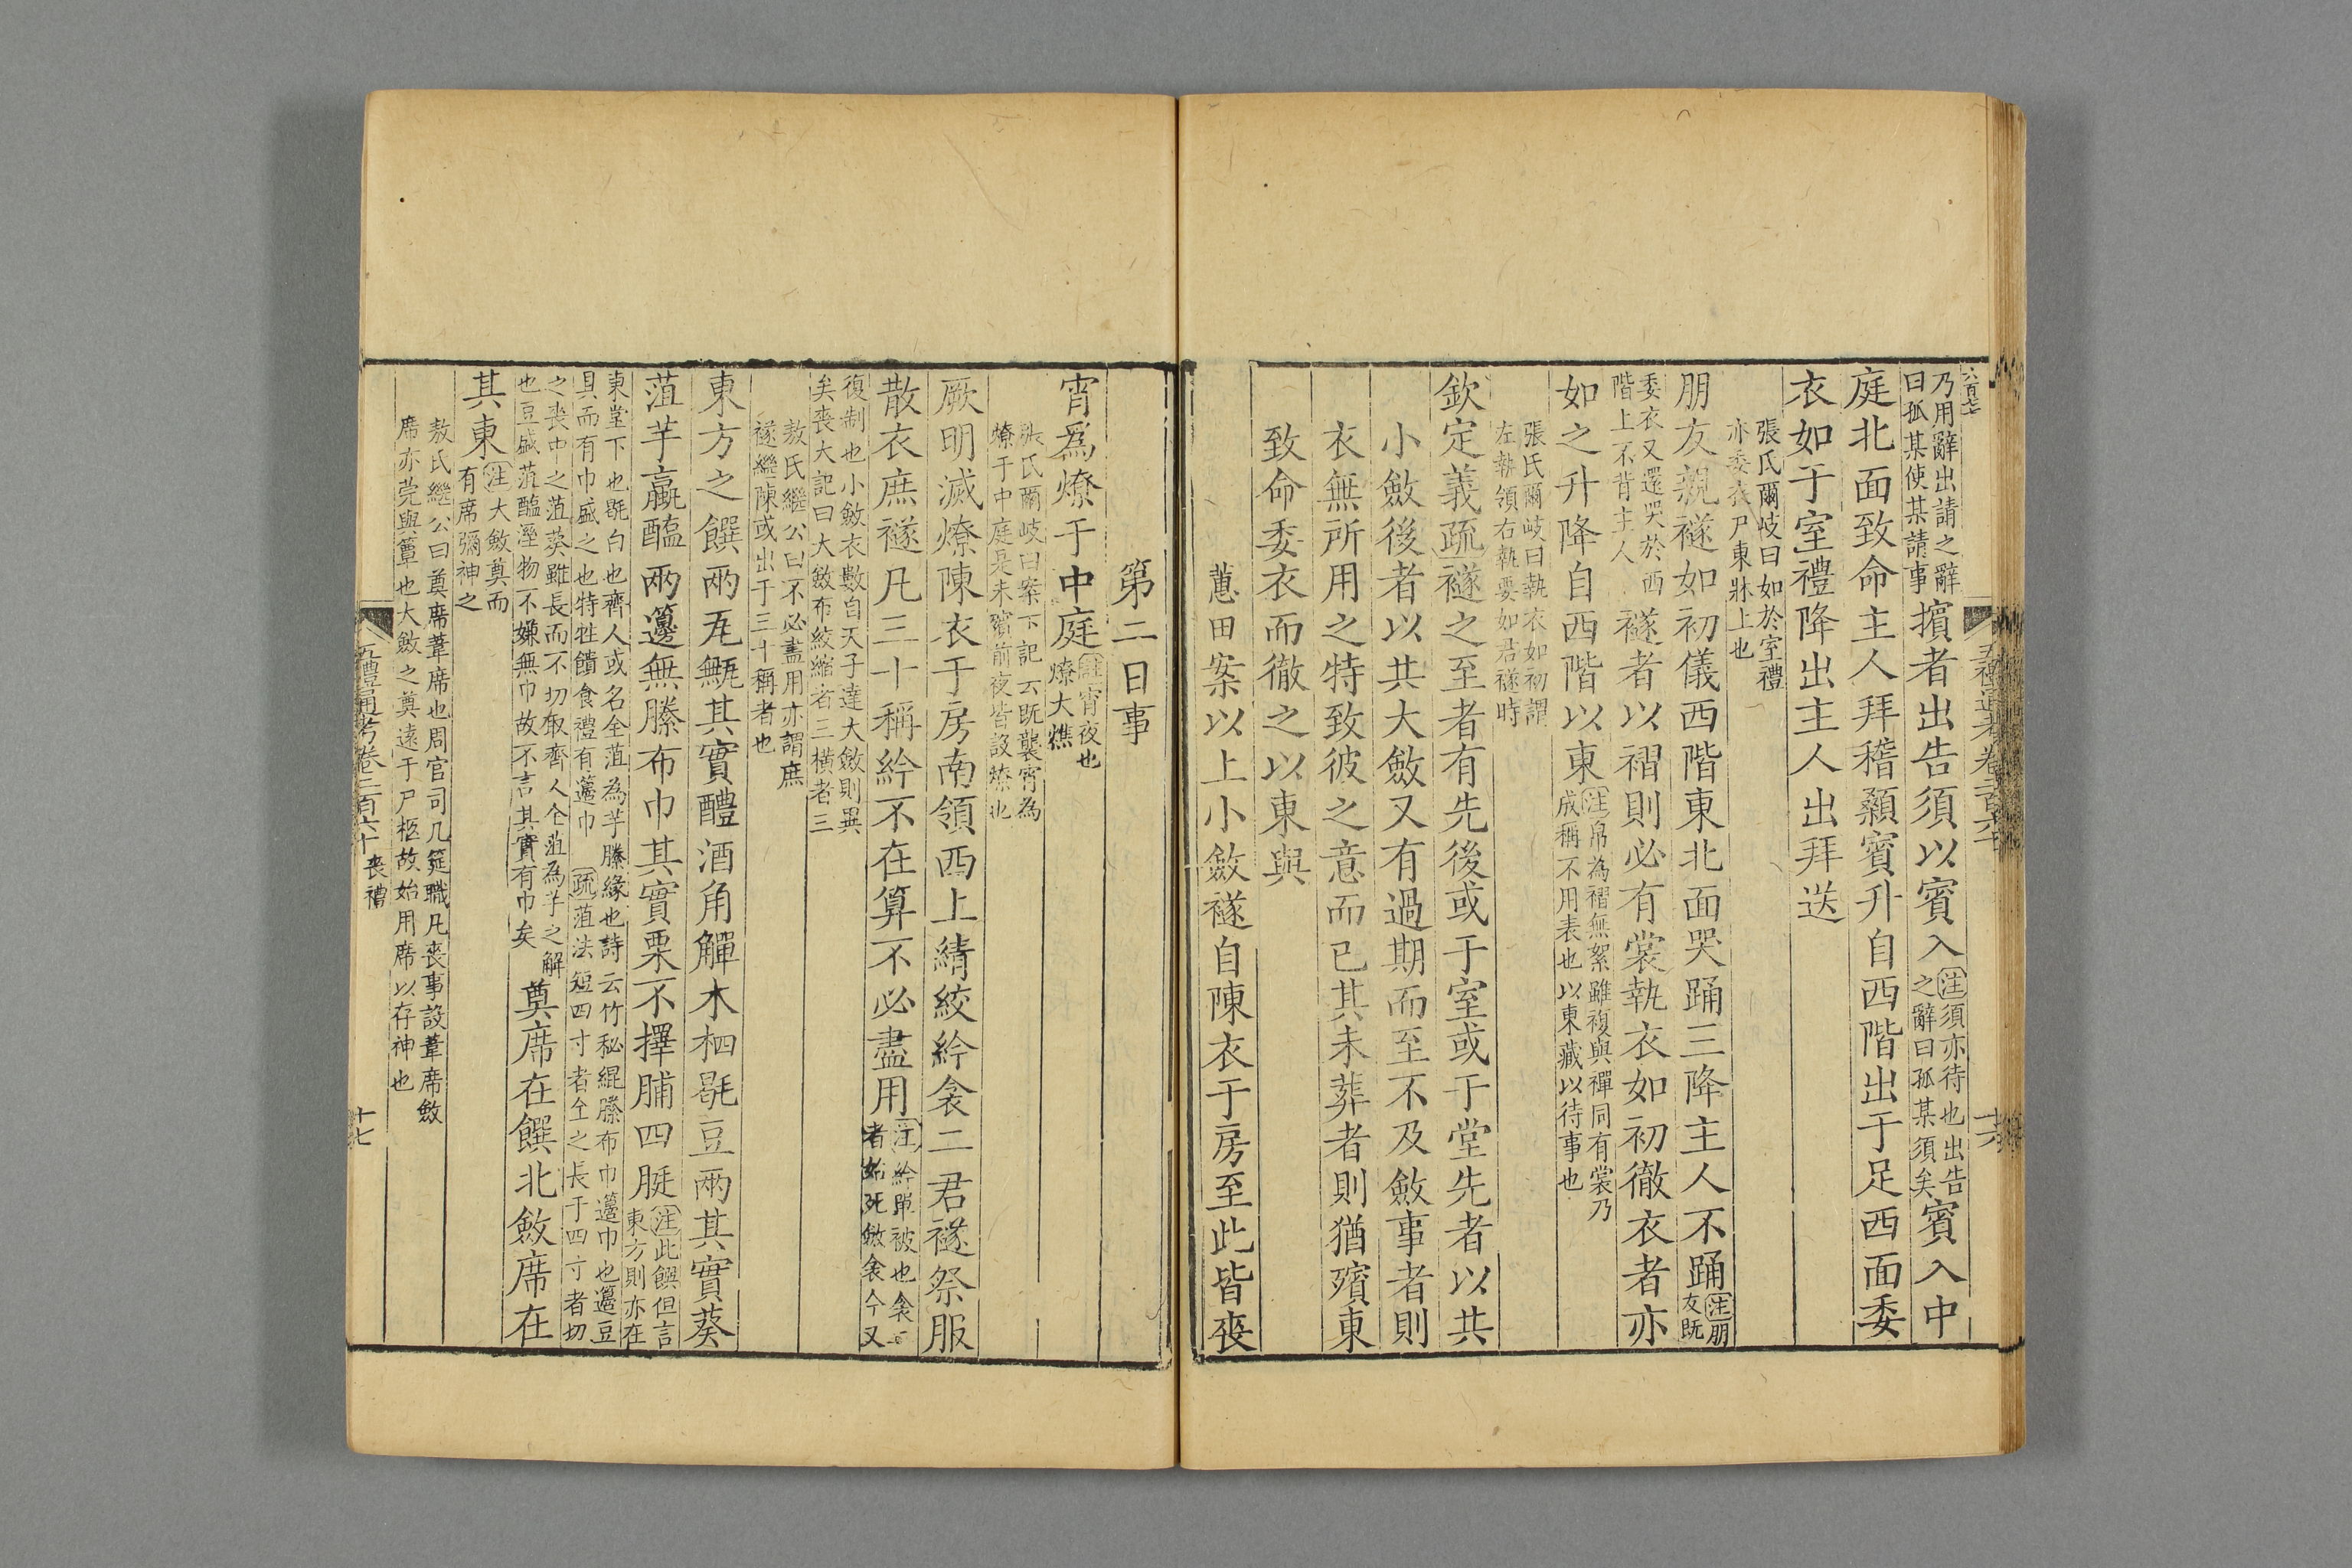 六百七
乃用辭出請之辭
曰孤某使某請事
擯者出告須以賓入
注須亦待也出告
之辭曰孤某須矣
賓入中
庭北面致命主人拜稽顙賓升自西階出于足西面委
衣如于室禮降出主人出拜送
張氏爾岐曰如於室禮
亦委衣尸東牀上也
朋友親襚如初儀西階東北面哭踊三降主人不踊
注朋
友既
委衣又還哭於西
階上不背主人
襚者以褶則必有裳執衣如初徹衣者亦
如之升降自西階以東
注帛為褶無絮雖複與禪同有裳乃
成稱不用表也以東藏以待事也
張氏爾岐曰執衣如初謂
左執領右執要如君襚時
欽定義疏襚之至者有先後或于室或于堂先者以共
小斂後者以共大斂又有過期而至不及斂事者則
衣無所用之特致彼之意而已其未葬者則猶殯東
致命委衣而徹之以東與
蕙田案以上小斂襚自陳衣于房至此皆喪
五禮通考卷二百六十
十六
第二日事
宵爲燎于中庭
注宵夜也
燎大燋
張氏爾岐曰案下記云既襲宵為
燎于中庭是未殯前夜皆設燎也
厥明滅燎陳衣于房南領西上綪絞紟衾二君襚祭服
散衣庶襚凡三十稱紟不在算不必盡用
注紟單被也衾二
者始死斂衾今又
復制也小斂衣數自天子達大斂則異
矣喪大記曰大斂布絞縮者三橫者三
敖氏繼公曰不必盡用亦謂庶
襚繼陳或出于三十稱者也
東方之饌兩瓦甒其實醴酒角觶木柶毼豆兩其實葵
菹芋蠃醢兩籩無縢布巾其實栗不擇脯四脡
注此饌但言
東方則亦在
東堂下也毼白也齊人或名全菹為芋縢緣也詩云竹柲緄縢布巾籩巾也籩豆
具而有巾盛之也特牲饋食禮有籩巾
疏菹法短四寸者全之長于四寸者切
之喪中之菹葵雖長而不切取齊人全菹為芋之解
也豆盛菹醢溼物不嫌無巾故不言其實有巾矣
奠席在饌北斂席在
其東
注大斂奠而
有席彌神之
敖氏繼公曰奠席葦席也周官司几筵職凡喪事設葦席斂
席亦莞與簟也大斂之奠遠于尸柩故始用席以存神也
五禮通考卷二百六十
喪禮
十七